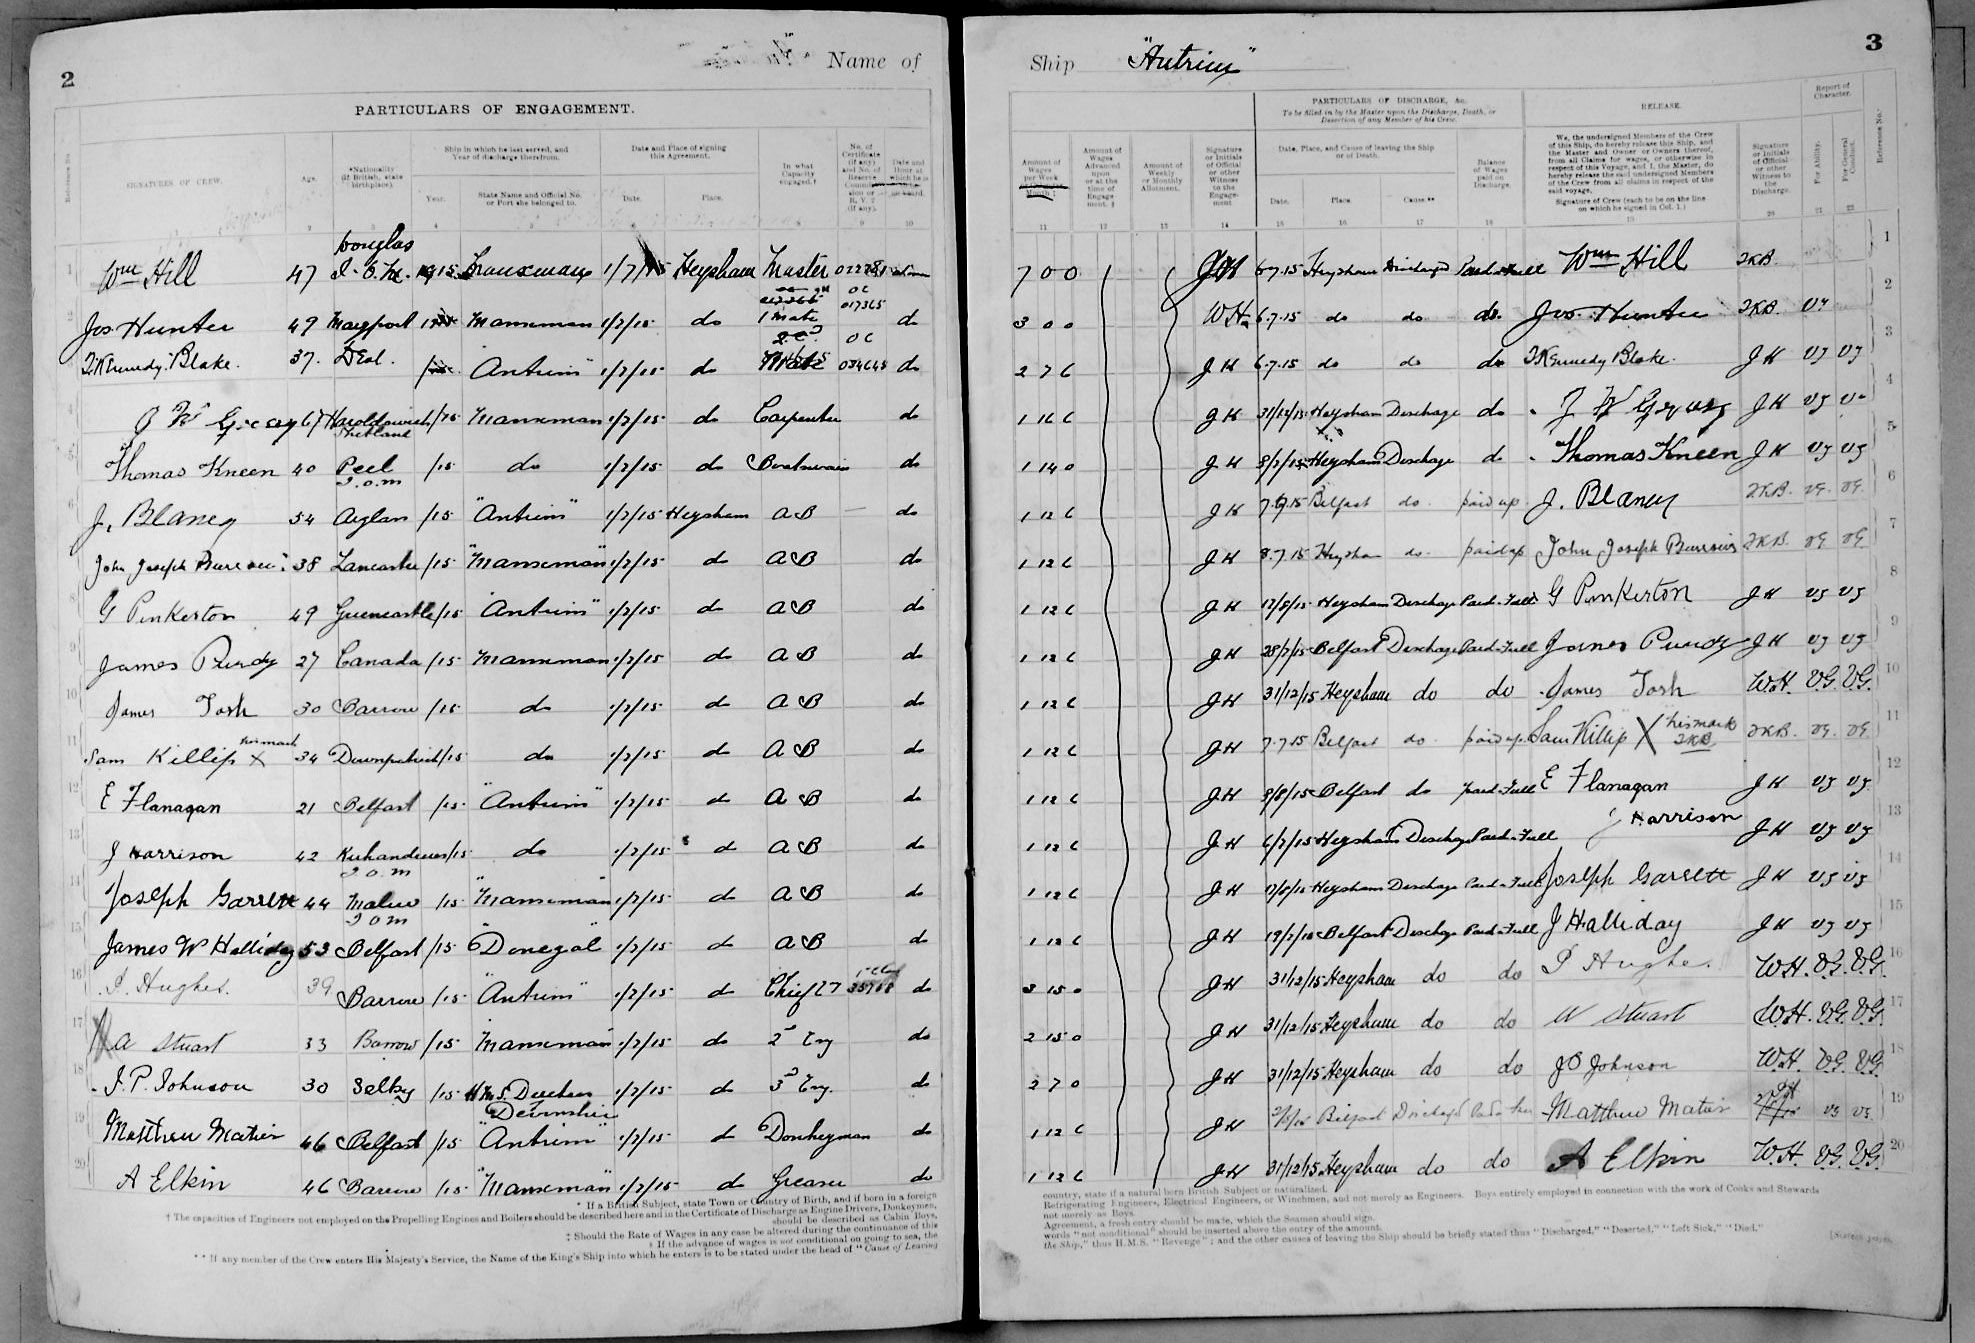 2
Name of
PARTICULARS OF ENGAGEMENT.
SIGNATURES OF CREW.
Age.
*Nationality (If British, state birthplace).
Ship in which he last served, and Year of discharge therefrom.
Year.
State Name and Official No. or Port she belonged to.
Date and Place of signing this Agreement.
Date.
Place.
In what Capacity engaged.†
Wm Hill 47 Douglas I.O.M. 1915 1/7/15 Heysham Master
Jos Hunter 49 Maryport Manxman 1/7/15 do 1 Mate 017365 do
T. Kennedy Blake. 37. Deal. "Antrim" 1/7/15 do 034645 do
67 Haroldswick Shetland /15 Manxman 1/7/15 do Carpenter do
Thomas Kneen 40 Peel I.O.M /15 do 1/7/15 do Boatswain do
J. Blaney 54 /15 "Antrim" 1/7/15 Heysham AB do
John Joseph 38 Lancaster /15 "Manxman" 1/7/15 do AB do
G Pinkerton 49 Greencastle /15 "Antrim" 1/7/15 do AB do
James Purdy 27 Canada /15 Manxman 1/7/15 do AB do
James Tosh 30 Barrow /15 do 1/7/15 do AB do
Sam Killip his mark X 34 Downpatrick /15 do 1/7/15 do AB do
E Flanagan 21 Belfast /15 "Antrim" 1/7/15 do AB do
J Harrison 42 I.O.M /15 do 1/7/15 do AB do
Joseph Garrett 44 Malew I O M /15 "Manxman" 1/7/15 do AB do
James W Halliday 53 Belfast /15 "Donegal" 1/7/15 do AB do
Hughes. 39 Barrow /15 "Antrim" 1/7/15 do Chief do
A Stuart 33 Barrow /15 Manxman 1/7/15 do 2d Eng do
J. P. Johnson 30 Selby /15 H.M.S. Duchess Devonshire 1/7/15 do 3d Eng. do
Matthew Matier 46 Belfast /15 "Antrim" 1/7/15 do Donkeyman do
A Elkin 46 Barrow /15 "Manxman" 1/7/15 do Greaser do
* If a British Subject, state Town or Country of Birth, and if born in a foreign
† The capacities of Engineers not employed on the Propelling Engines and Boilers should be described here and in the Certificate of Discharge as Engine Drivers, Donkeymen,
should be described as Cabin Boys,
‡ Should the Rate of Wages in any case be altered during the continuance of this
§ If the advance of wages is not conditional on going to sea, the
** If any member of the Crew enters His Majesty's Service, the Name of the King's Ship into which he enters is to be stated under the head of "Cause of Leaving
3
Ship "Antrim"
PARTICULARS OF DISCHARGE, &c.
To be filled in by the Master upon the Discharge, Death, or Desertion of any Member of his Crew.
RELEASE.
Report of Character.
Amount of Wages per Week
Amount of Wages Advanced upon or at the time of Engagement. ‡
Amount of Weekly or Monthly Allotment.
Signature or Initials of Official or other Witness to the Engagement
Date, Place, and Cause of leaving the Ship or of Death.
Date.
Place.
Cause.**
Balance of Wages paid on Discharge.
We, the undersigned Members of the Crew of this Ship, do hereby release this Ship, and the Master and Owner or Owners thereof, from all Claims for wages, or otherwise in respect of this Voyage, and I, the Master, do hereby release the undersigned Members of the Crew from all claims in respect of the said voyage.
Signature of Crew (each to be on the line on which he signed in Col. 1.)
Signature or Initials of Official or other Witness to the Discharge.
For Ability.
For General Conduct.
Reference No.
7 0 0 JH 6.7.15 Heysham Discharged Wm Hill TKB.
3 0 0 WH. 6.7.15 do do do. Jos. Hunter TKB.
2 7 6 JH 6.7.15 do do do T Kennedy Blake. JH VG VG
1 16 6 JH 31/12/15 Heysham Discharge do JH VG
1 14 0 JH Heysham Discharge do Thomas Kneen JH VG VG
1 12 6 JH Belfast do. paid up J. Blaney TKB. VG. VG.
1 12 6 JH 8.7.15 Heysham do. paid up John Joseph TKB. VG VG
1 12 6 JH Heysham Discharge Paid-Full G Pinkerton JH VG VG
1 12 6 JH 28/7/15 Belfast Discharge Paid-Full James Purdy JH VG VG
1 12 6 JH 31/12/15 Heysham do do James Tosh W.H. V.G. V.G.
1 12 6 JH 7.7.15 Belfast do. paid up. Sam Killip X his mark TKB TKB. VG. VG.
1 12 6 JH Belfast do paid-Full E Flanagan JH VG VG
1 12 6 JH Heysham Discharge Paid-Full J Harrison JH VG VG
1 12 6 JH Heysham Discharge Paid-Full Joseph Garrett JH VG VG
1 12 6 JH Belfast Discharge Paid-Full J Halliday JH VG VG
3 15 0 JH 31/12/15 Heysham do do Hughes. W.H. V.G. V.G.
2 15 0 JH 31/12/15 Heysham do do Stuart W.H. V.G. V.G.
2 7 0 JH 31/12/15 Heysham do do Johnson W.H. V.G. V.G.
1 12 6 JH Belfast Discharged Matthew Matier VG VG.
1 12 6 JH 31/12/15 Heysham do do A Elkin W.H. V.G. V.G.
country, state if a natural born British Subject or naturalized.
Refrigerating Engineers, Electrical Engineers, or Winchmen, and not merely as Engineers. Boys entirely employed in connection with the work of Cooks and Stewards
not merely as Boys.
Agreement, a fresh entry should be made, which the Seamen should sign.
words "not conditional" should be inserted above the entry of the amount.
the Ship," thus H.M.S. "Revenge"; and the other causes of leaving the Ship should be briefly stated thus "Discharged," "Deserted," "Left Sick," "Died."